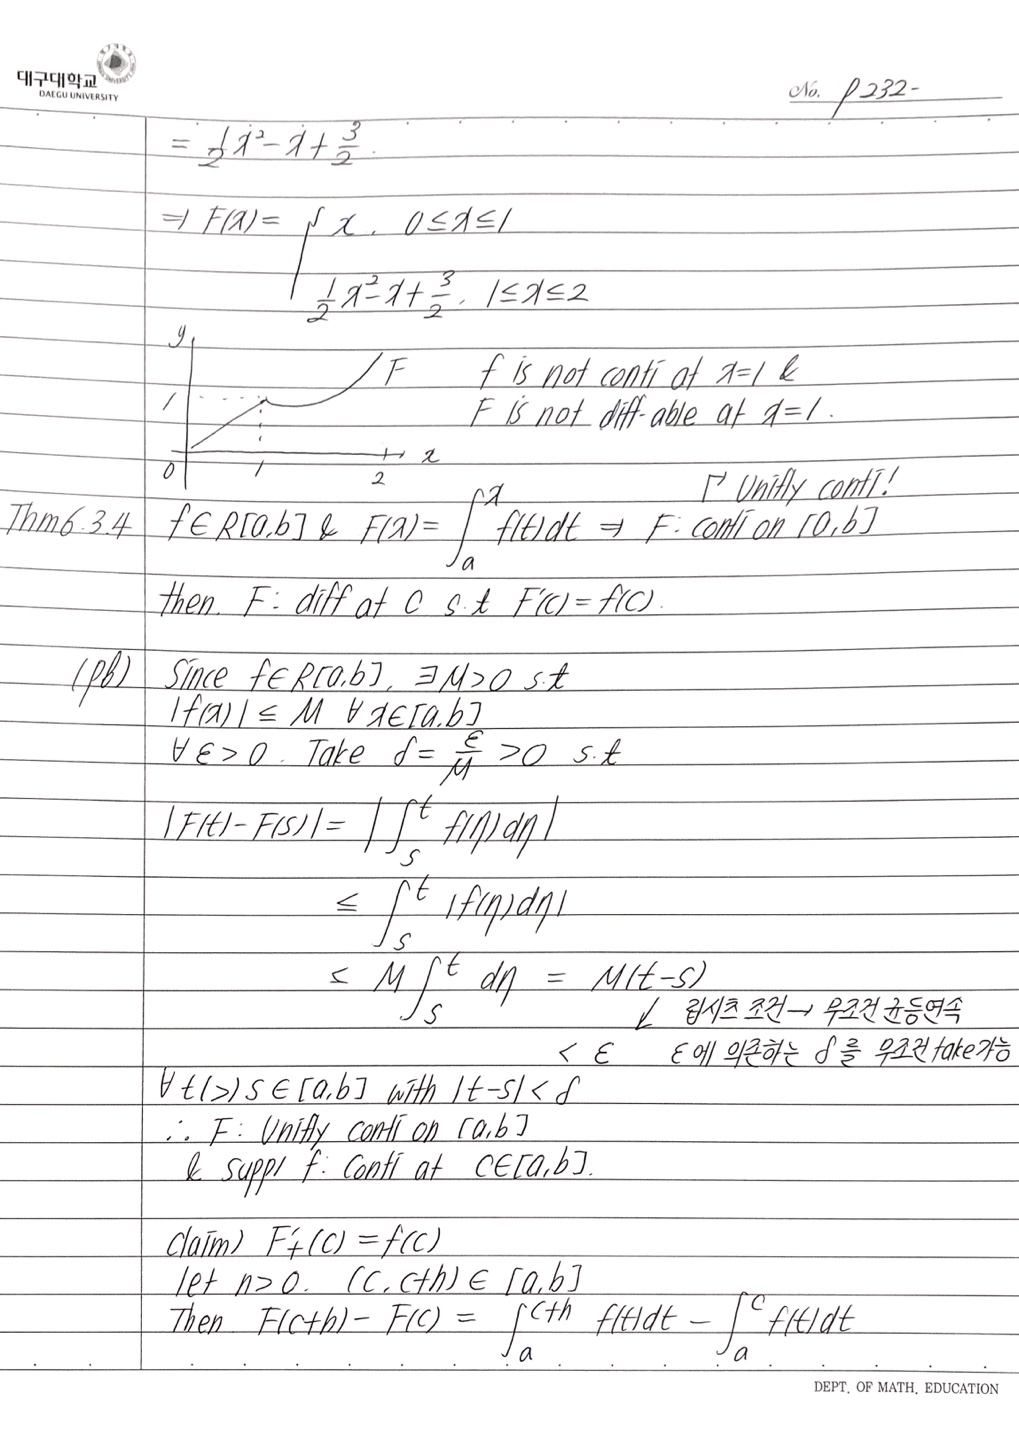 대구대학교
DAEGU UNIVERSITY
No. p232-
= 1/2 x² - x + 3/2.
⇒ F(x) = { x, 0≤x≤1
1/2 x² - x + 3/2, 1≤x≤2
y
F
f is not conti at x=1 &
1
F is not diff-able at x=1.
0 1 2 x
┌ Unifly conti!
Thm 6.3.4 f∈R[a,b] & F(x) = ∫_a^x f(t)dt ⇒ F: conti on [a,b]
then. F: diff at C s.t F'(c) = f(c).
(pf) Since f∈R[a,b], ∃M>0 s.t
|f(x)| ≤ M ∀x∈[a,b]
∀ε>0. Take δ = ε/M >0 s.t
|F(t)-F(s)| = |∫_s^t f(η)dη|
≤ ∫_s^t |f(η)dη|
≤ M ∫_s^t dη = M(t-s)
↙ 립시츠 조건 → 무조건 균등연속
< ε ε에 의존하는 δ를 무조건 take가능
∀t(>)s∈[a,b] with |t-s|<δ
∴ F: Unifly conti on [a,b]
& supp) f: conti at C∈[a,b].
claim) F'+(c) = f(c)
let h>0. (c, c+h) ∈ [a,b]
Then F(c+h) - F(c) = ∫_a^{c+h} f(t)dt - ∫_a^c f(t)dt
DEPT. OF MATH. EDUCATION